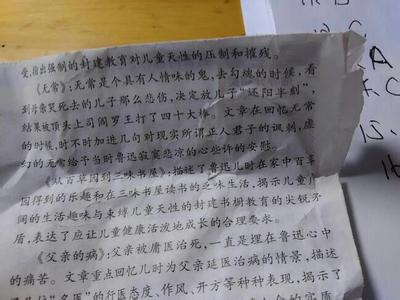 受,指出强制的封建教育对儿童天性的压制和摧残。
《无常》:无常是个具有人情味的鬼,去勾魂的时候,看
到母亲哭死去的儿子那么悲伤,决定放儿子“还阳半刻”,
结果被顶头上司阎罗王打了四十大棒。文章在回忆无常
的时候,时不时加进几句对现实所谓正人君子的讽刺,虚
幻的无常给予当时鲁迅寂寞悲凉的心些许的安慰。
《从百草园到三味书屋》:描述了鲁迅儿时在家中百草
园得到的乐趣和在三味书屋读书的乏味生活,揭示儿童广
阔的生活趣味与束缚儿童天性的封建书塾教育的尖锐矛
盾,表达了应让儿童健康活泼地成长的合理要求。
《父亲的病》:父亲被庸医治死,一直是埋在鲁迅心中
的痛苦。文章重点回忆儿时为父亲延医治病的情景,描述
“名医”的行医态度、作风、开方等种种表现,揭示了
A
C
15.